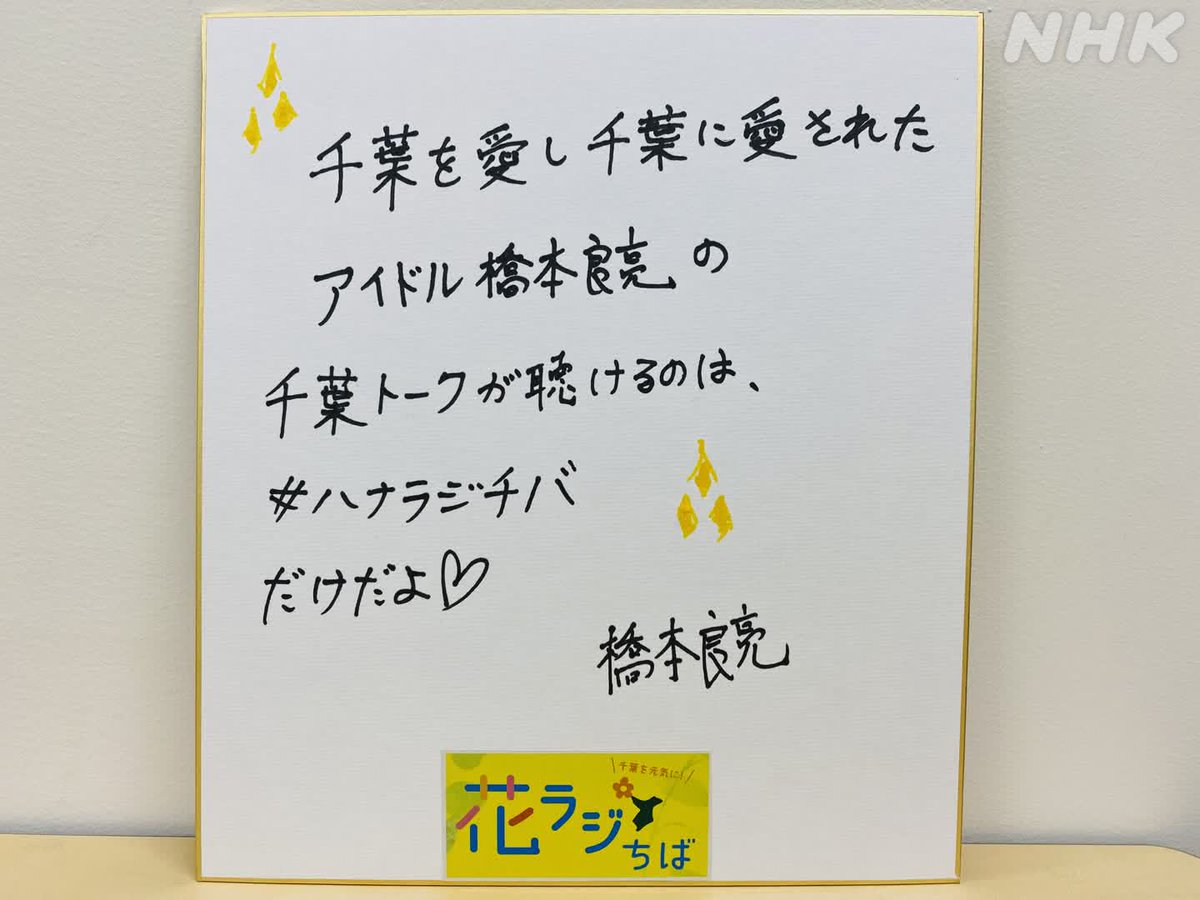 NHK
千葉を愛し千葉に愛された
アイドル橋本良亮の
千葉トークが聴けるのは、
#ハナラジチバ
だけだよ♡
橋本良亮
\千葉を元気に!/
花ラジ
ちば